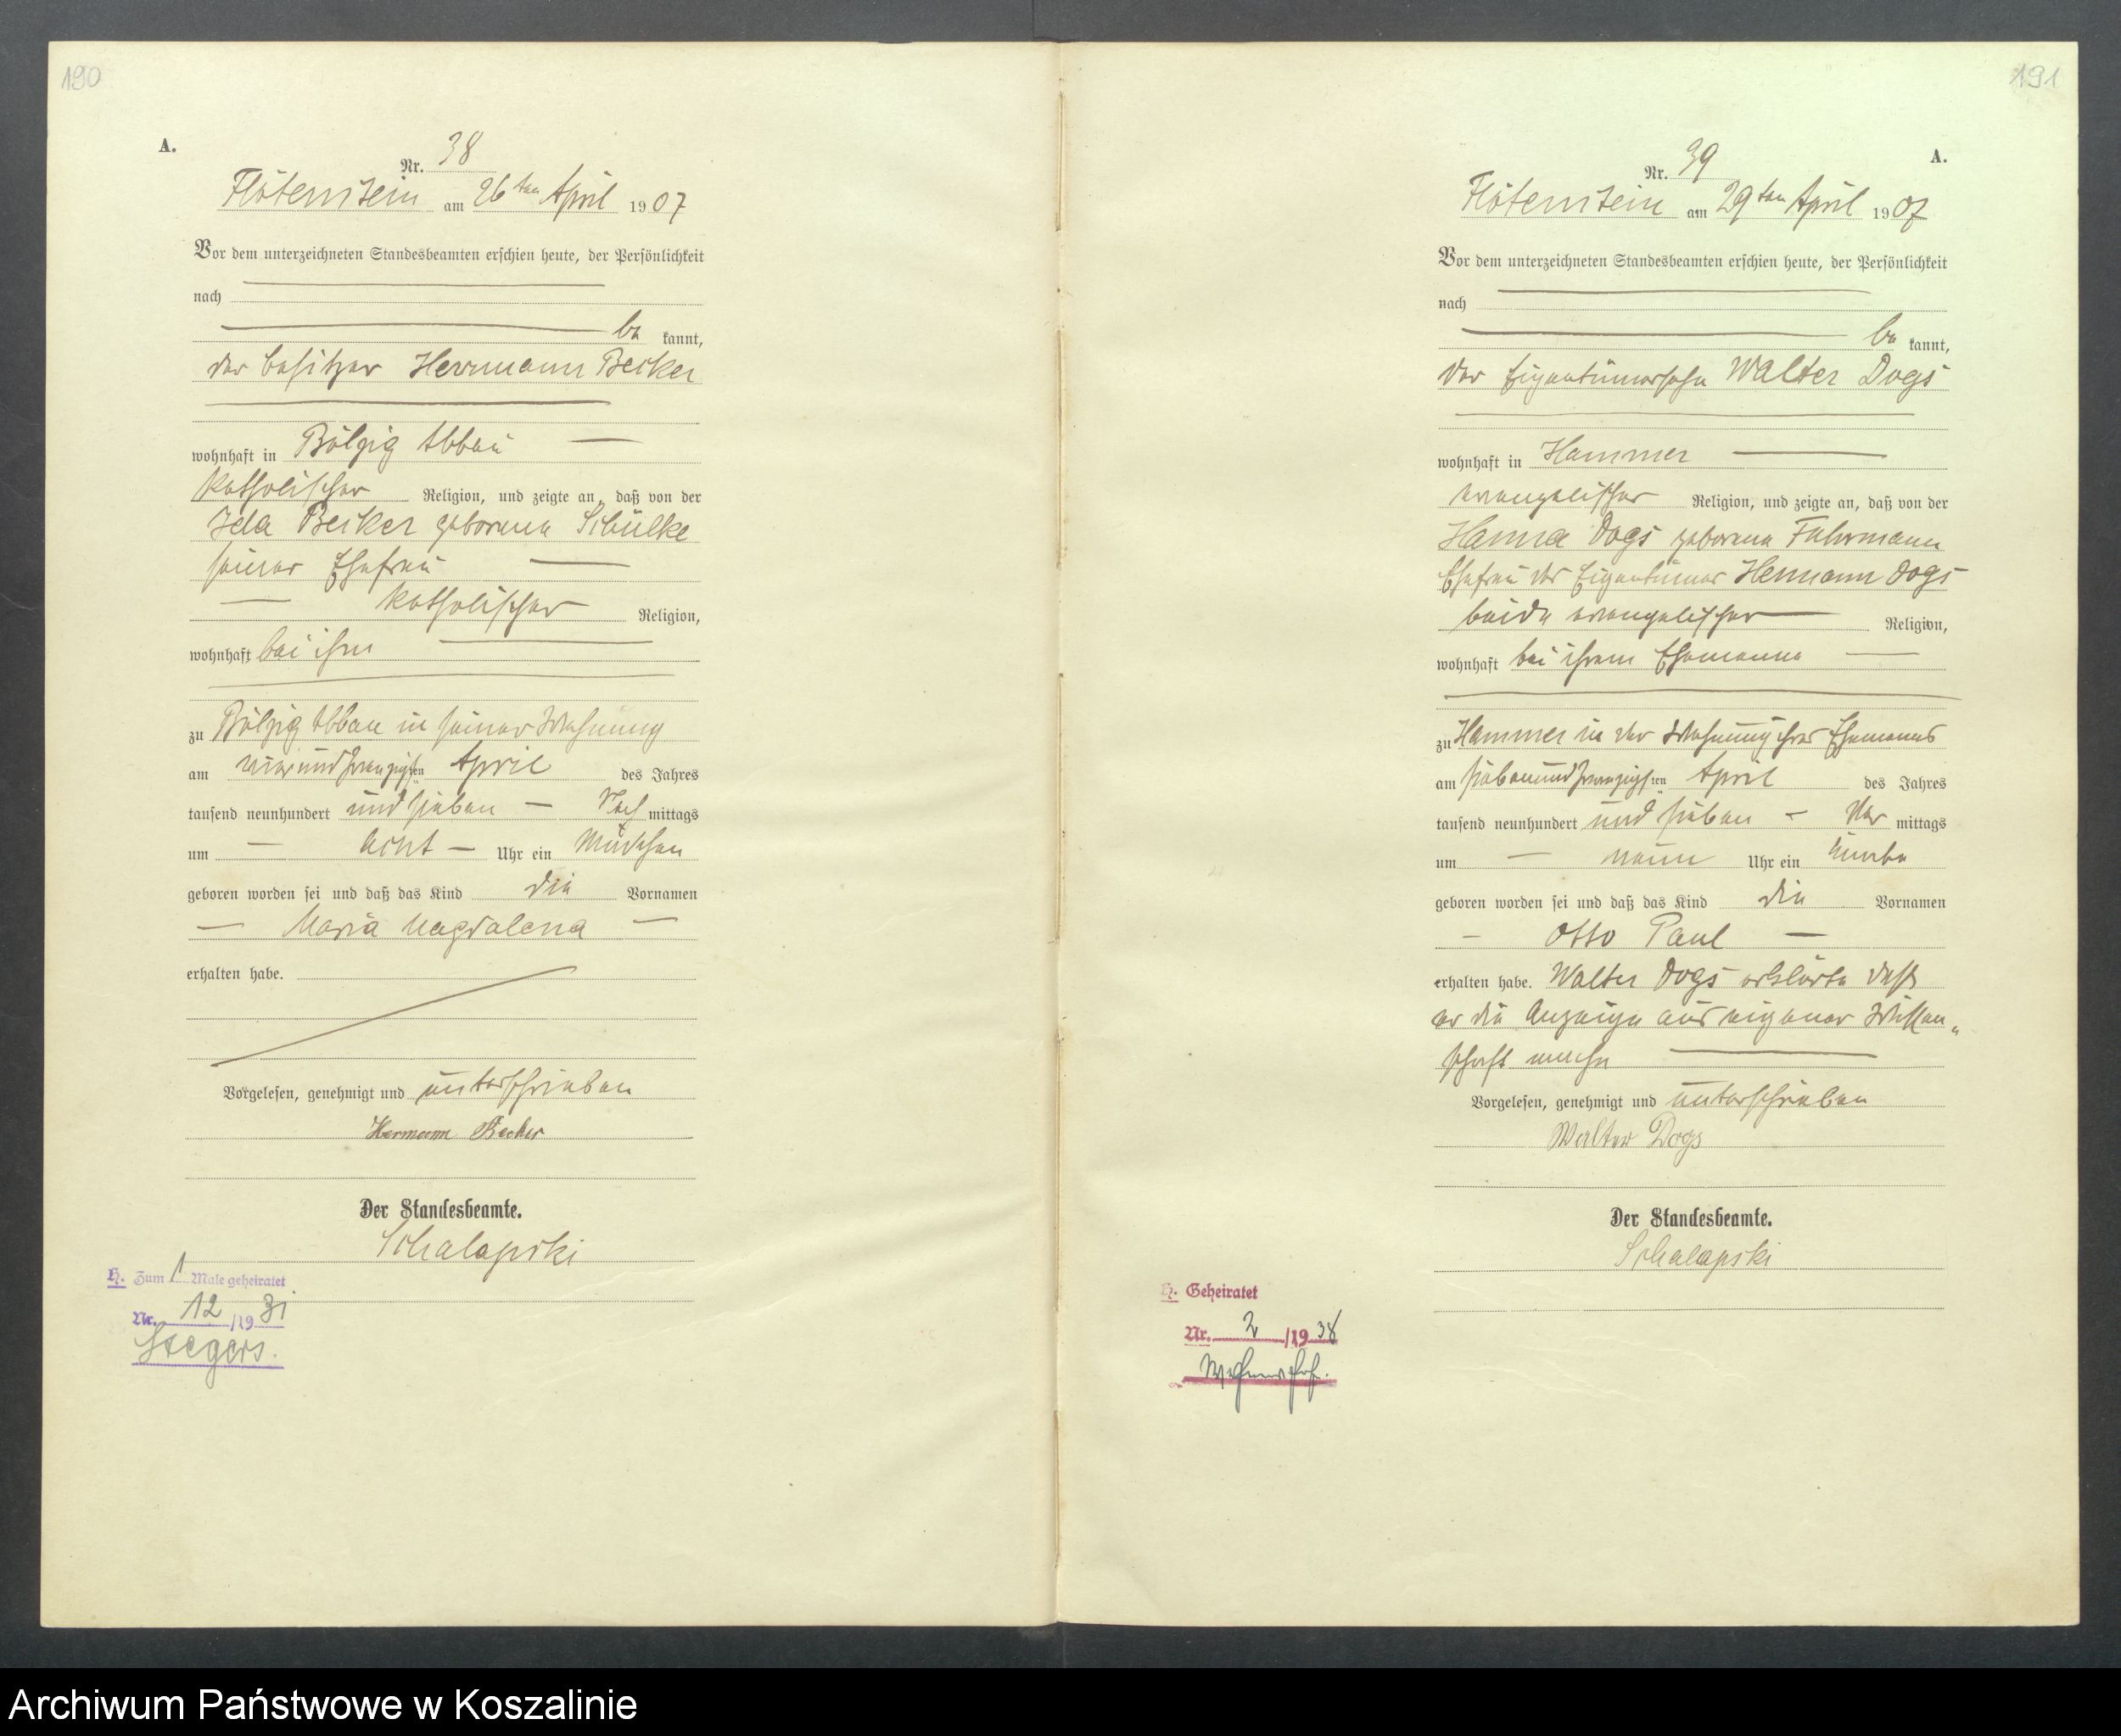 190
A.
Nr. 38
Flötenstein am 26ten April 1907
Vor dem unterzeichneten Standesbeamten erschien heute, der Persönlichkeit
nach
be kannt,
der Besitzer Herrmann Becker
wohnhaft in Bölzig Abbau
katholischer Religion, und zeigte an, daß von der
Ida Becker geborene Schülke
seiner Ehefrau
katholischer Religion,
wohnhaft bei ihm
zu Bölzig Abbau in seiner Wohnung
am vierundzwanzigsten April des Jahres
tausend neunhundert und sieben Nach mittags
um acht Uhr ein Mädchen
geboren worden sei und daß das Kind die Vornamen
Maria Magdalena
erhalten habe.
Vorgelesen, genehmigt und unterschrieben
Hermann Becker
Der Standesbeamte.
Schalapski
H. Zum 1 Male geheiratet
Nr. 12 /1931
Stegers.
191
A.
Nr. 39
Flötenstein am 29ten April 1907
Vor dem unterzeichneten Standesbeamten erschien heute, der Persönlichkeit
nach
be kannt,
der Eigentümersohn Walter Dogs
wohnhaft in Hammer
evangelischer Religion, und zeigte an, daß von der
Hanna Dogs geborene Fuhrmann
Ehefrau des Eigentümer Hermann Dogs
beide evangelischer Religion,
wohnhaft bei ihrem Ehemanne
zu Hammer in der Wohnung ihres Ehemannes
am siebenundzwanzigsten April des Jahres
tausend neunhundert und sieben Vor mittags
um neun Uhr ein Knabe
geboren worden sei und daß das Kind die Vornamen
Otto Paul
erhalten habe. Walter Dogs erklärte daß
er die Anzeige aus eigener Wissen„
schaft mache
Vorgelesen, genehmigt und unterschrieben
Walter Dogs
Der Standesbeamte.
Schalapski
H. Geheiratet
Nr. 2 /1938
Archiwum Państwowe w Koszalinie